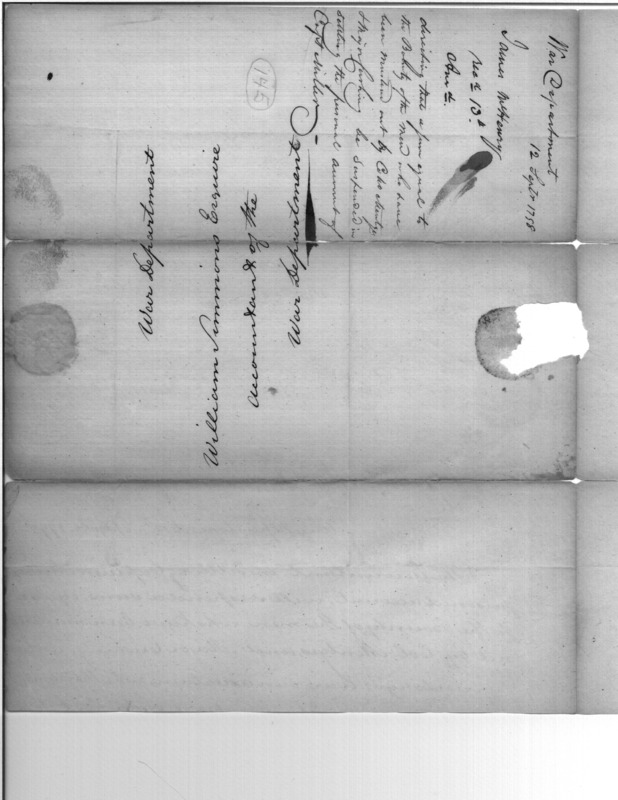 War Department
12 Sept. 1798
James McHenry
Rec'd 13th
directing that a sum equal to
the Bounty of the men who have
been mustered out by
Major Cushing be suspended in
settling the personal account of
Capt. Miller
145
War Department
William Simmons Esquire
Accountant to the
War Department